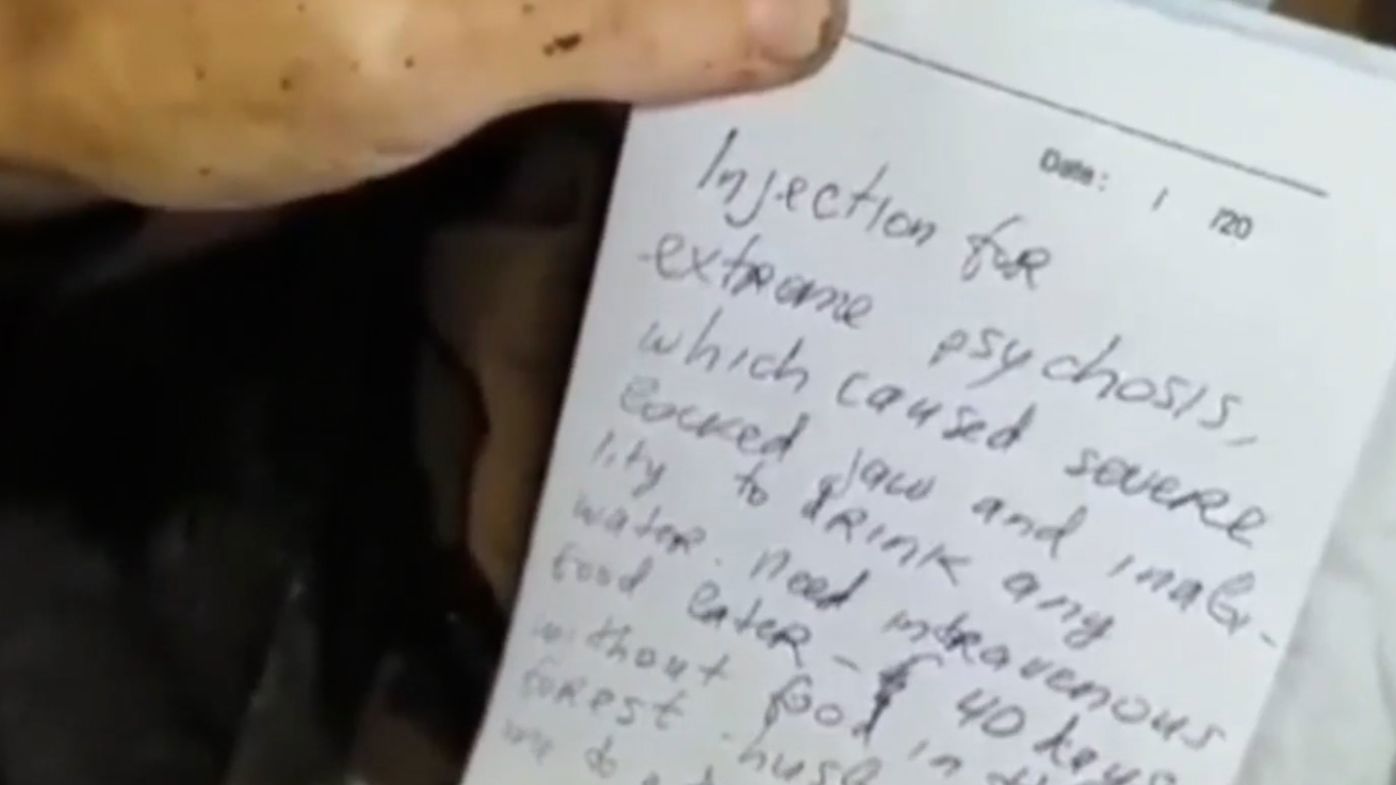 Date: / /20
Injection for
extreme psychosis,
which caused severe
locked jaw and inabi-
lity to drink any
water. Need intravenous
food later - 40 days
without food in the
forest - husb
me to